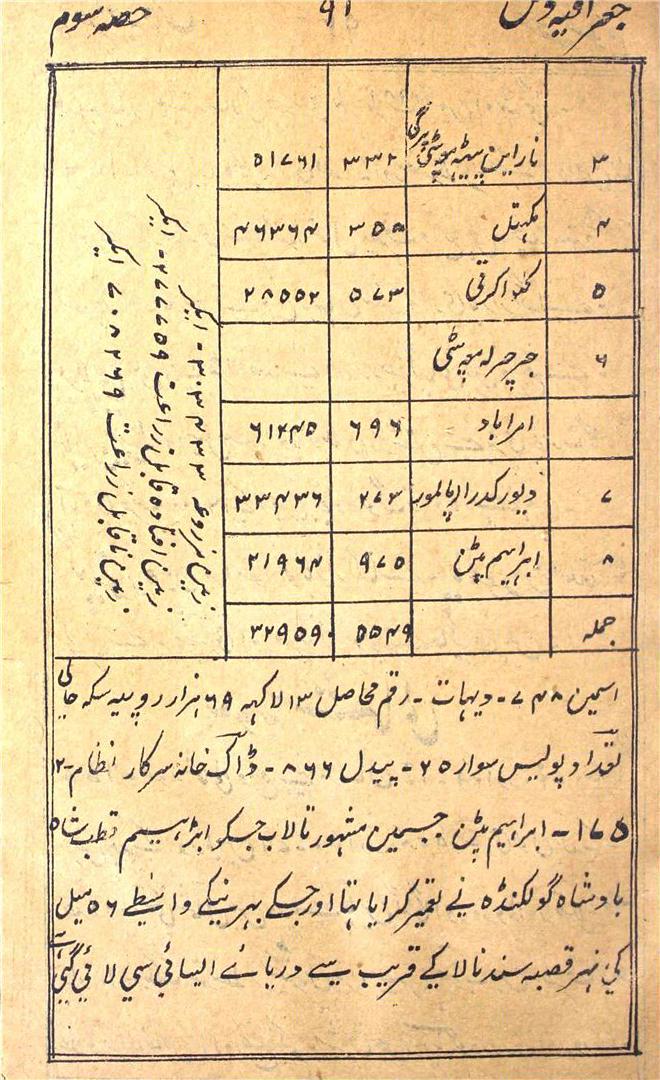 جغرافیہ دکن ۹۱ حصہ سوم
۳ نارائن پیٹھ ۳۳۲ ۵۱۷۶۱
۴ مکہتل ۳۵۵ ۴۶۳۶۴
۵ ۵۷۳ ۲۸۵۵۲
۶ جرچرلہ
امراباد ۶۹۶ ۶۱۲۴۵
۷ ۲۷۳ ۳۳۴۳۶
۸ ابراہیم پٹن ۹۷۵ ۲۱۹۶۴
جملہ ۵۵۴۹ ۳۲۹۵۹۰
زمین مزروعہ ۳۰۳۴۳۳ - ایکر
زمین افتادہ قابل زراعت ۲۷۷۷۵۹ - ایکر
زمین ناقابل زراعت ۷۰۸۲۶۹ ایکر
اسمین ۷۴۸ - دیہات - رقم محاصل ۱۳ لاکہہ ۶۹ ہزار روپیہ سکہ حالی
تعداد پولیس سوار ۲۵ - پیدل ۸۶۶ - ڈاک خانہ سرکار نظام - ۱۲
۱۷۵ - ابراہیم پٹن جسمین مشہور تالاب جسکو ابراہیم قطب شاہ
بادشاہ گولکنڈہ نے تعمیر کرایا تہا اور جسکے بہرنیکے واسیطے ۵۶ میل
کی نہر قصبہ سندنالا کے قریب سے دریائے السائی سی لائی گئی ہے